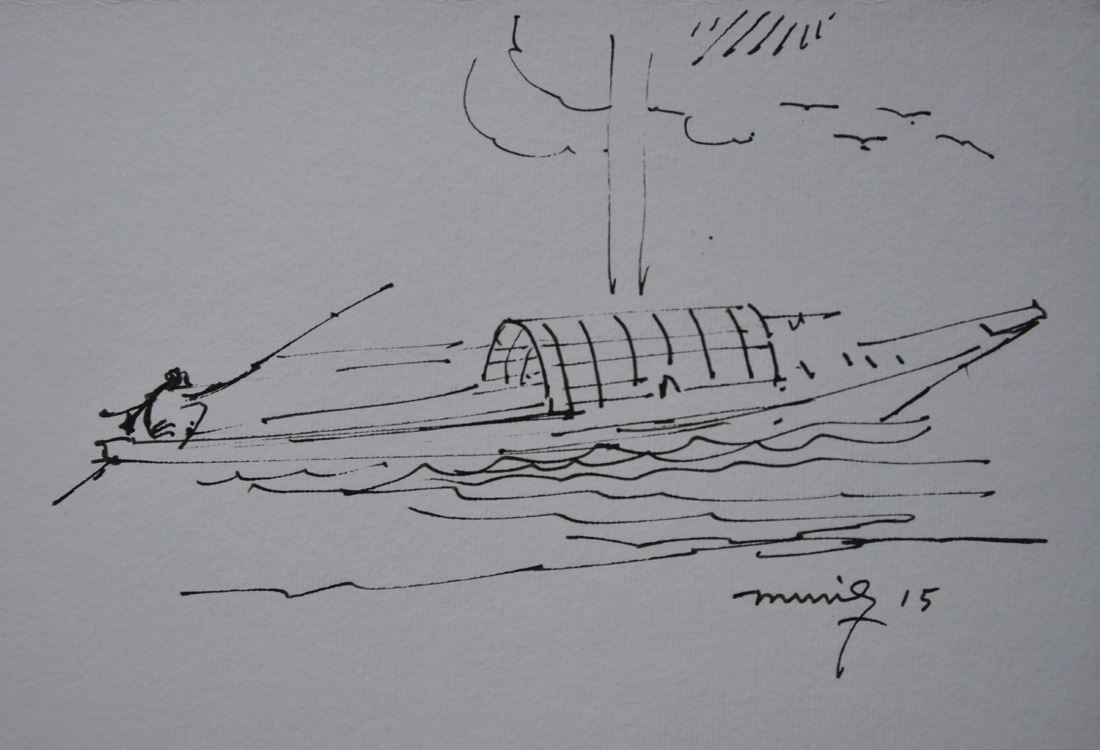 muniz 15